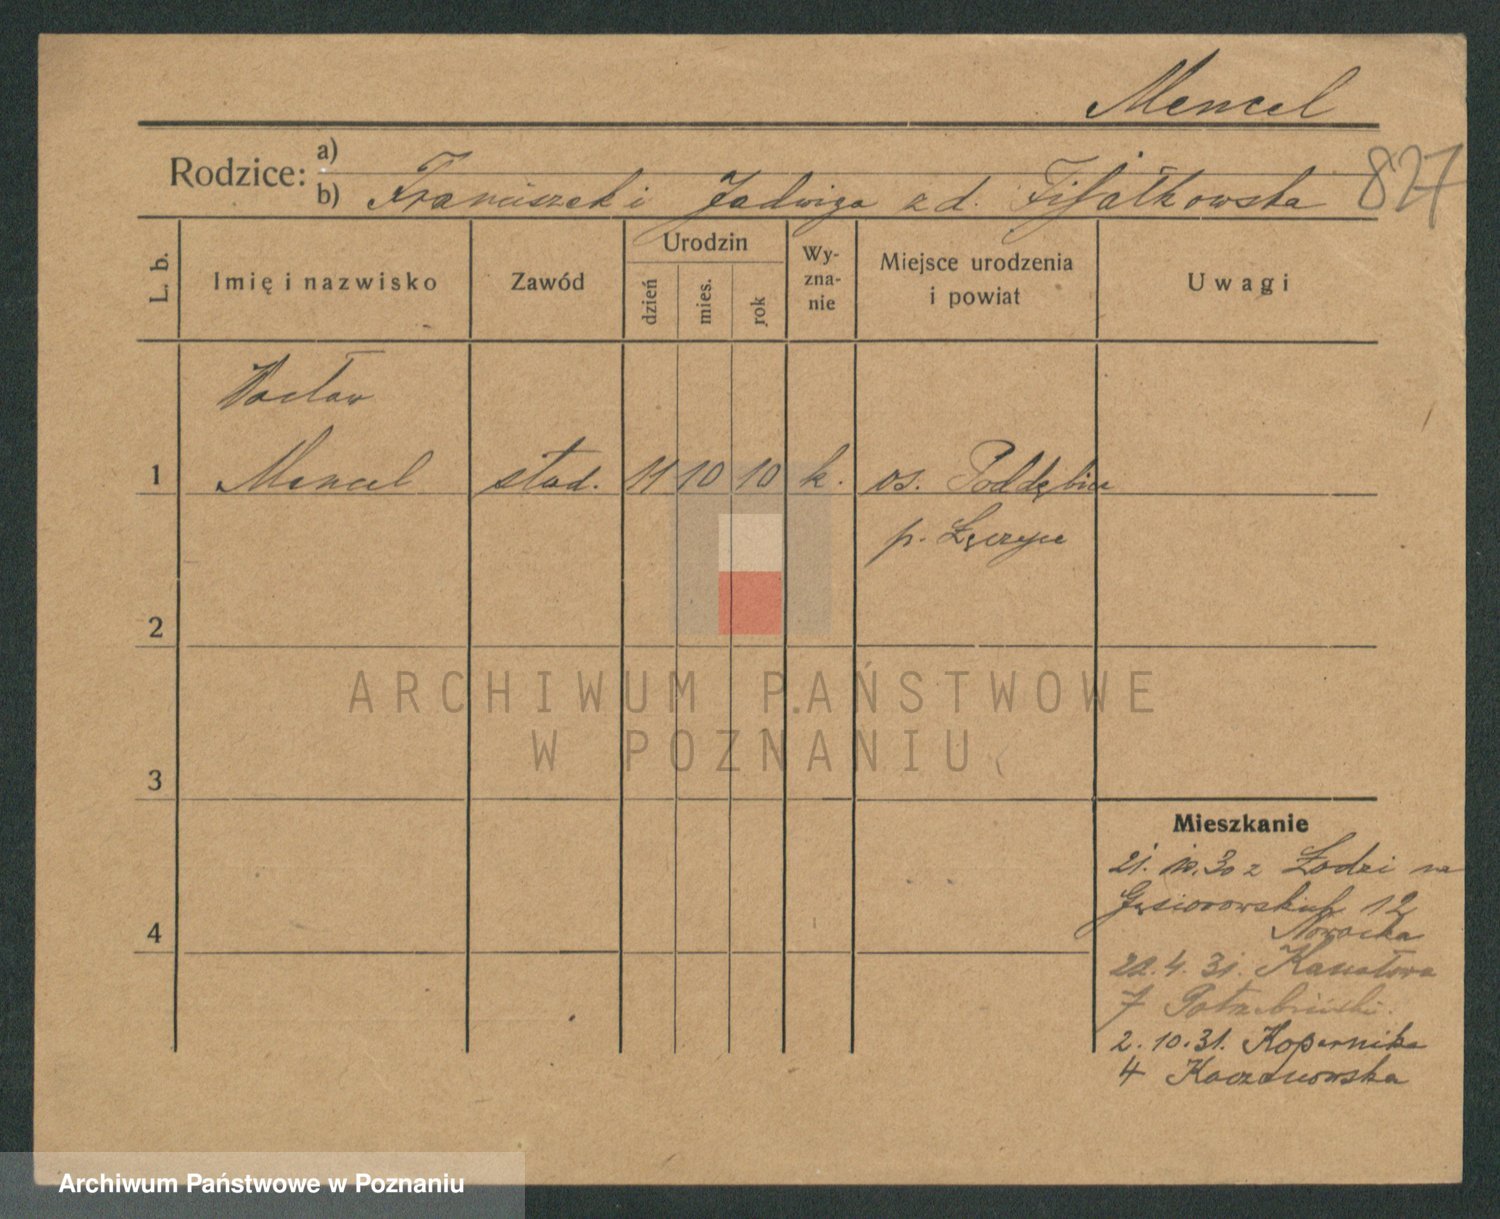 Mencel
Rodzice: a)
b) Franciszek i Jadwiga z d. Fijałkowska
827
L. b.
Imię i nazwisko
Zawód
Urodzin
dzień
mies.
rok
Wy-
zna-
nie
Miejsce urodzenia
i powiat
Uwagi
Wacław
1 Mencel stud. 11 10 10 k. os. Poddębice
p. Łęczyca
2
ARCHIWUM PAŃSTWOWE
W POZNANIU
3
Mieszkanie
21. 10. 30 z Łodzi na
Gąsiorowskich 12
Nowacka
4
20. 4. 31. Kanałowa
7
2. 10. 31. Kopernika
4 Kaczanowska
Archiwum Państwowe w Poznaniu